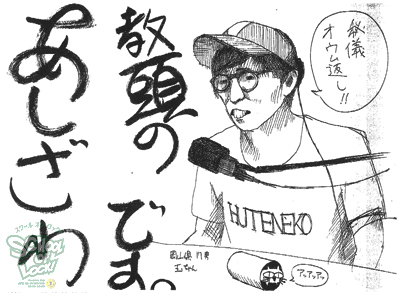 教頭の
あしざわ
です。
秘儀
オウム返し!!
HUTENEKO
岡山県 17才
玉ちゃん
アッアッアッ
SCHOOL OF LOCK!